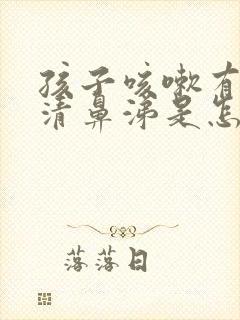 孩子咳嗽有
清鼻涕是怎
落落日